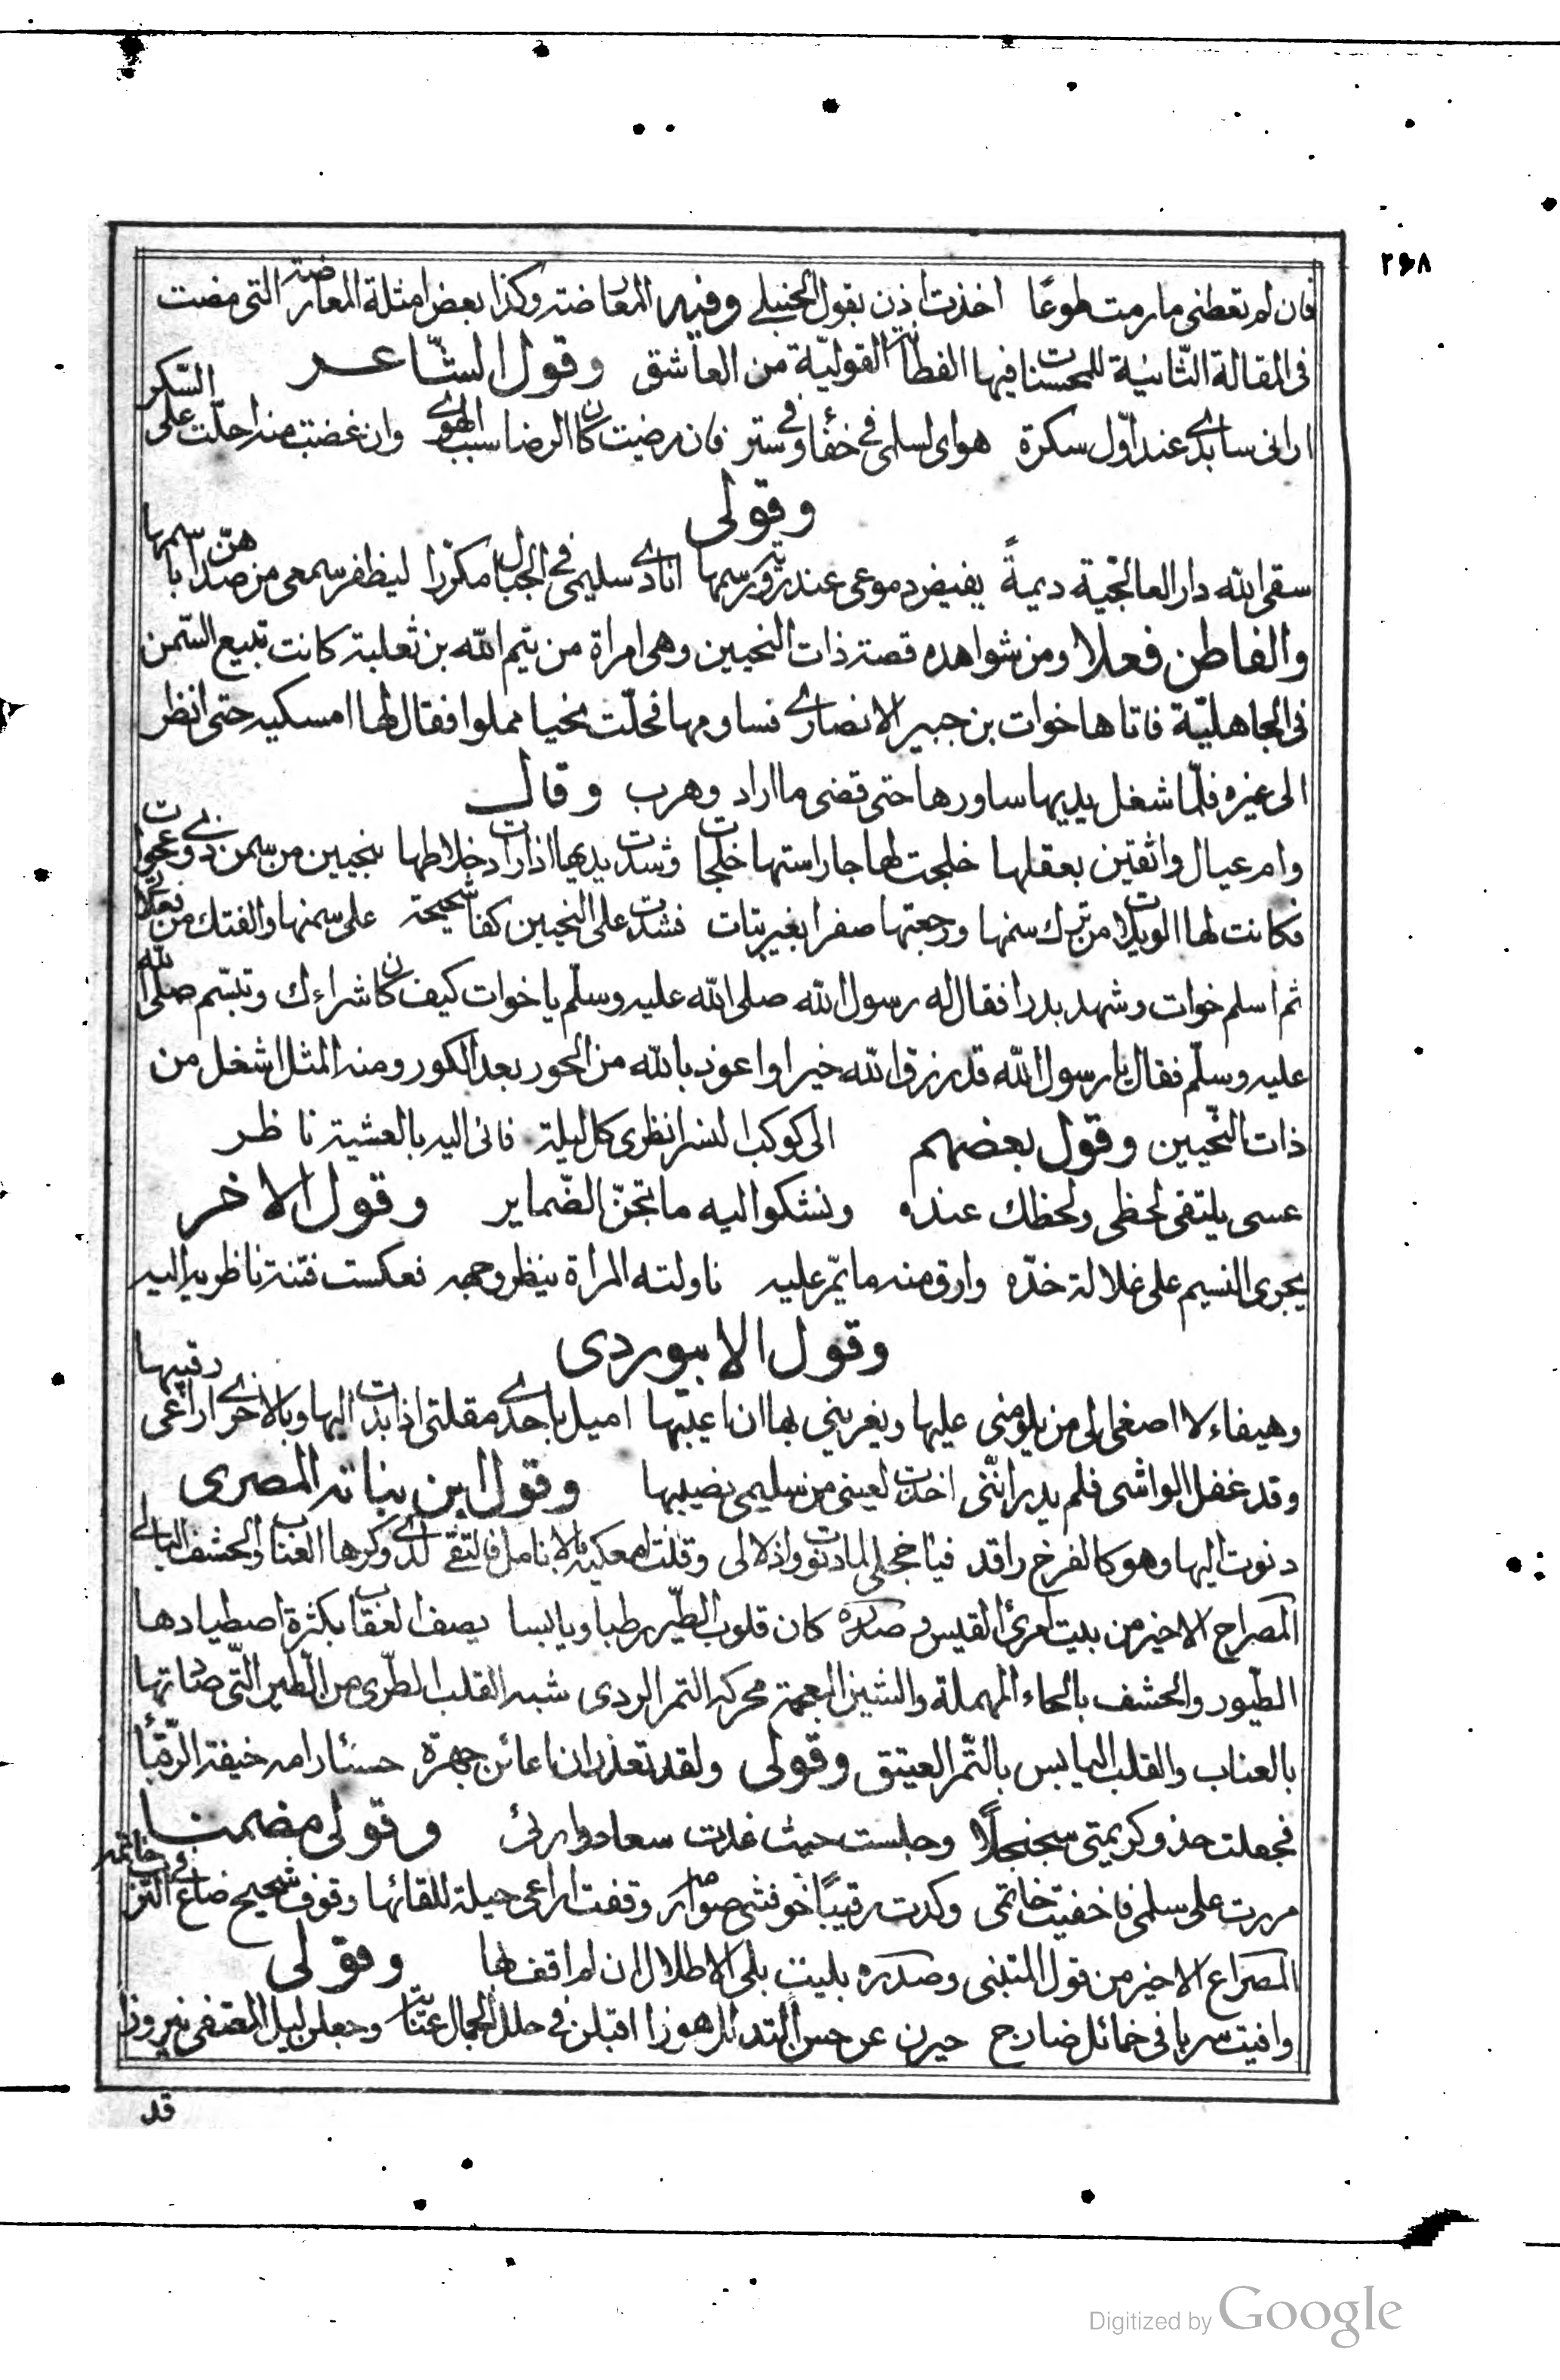 ٢٦٨
فان لم تعطنى مارمت طوعًا اخذت اذن بقول الحنبلے وفيه المعارضة وكذا بعض امثلة المعارضة التى مضت
فى المقالة الثّانية للمحسنات فيها الفطانة القوليّة من العاشق وقول الشّاعر
ارانى سابدے عند اوّل سكرة هواى لسلمى فے خفأ وفے ستر فان رضيت كان الرضا سبب الهوے وان غضبت منه احلّت على السّكر
وقولى
سقى الله دار العالجّية ديمةً يفيض دموعى عند رسمها انادے سليمى فے الجبال مكرّرا ليظفر سمعى من صداهنّ باسمها
والفاطن فعلا ومن شواهده قصة ذات النحيين وهى امراة من تيم الله بن ثعلبة كانت تبيع السّمن
فى الجاهليّة فاتاها خوات بن جبير الانصارے فساومها فحلّت نحيا مملوا فقال لها امسكيه حتى انظر
الى غيره فلمّا شغل يديها ساورها حتى قضى ما اراد وهرب وقال
وام عيال واثقين بعقلها خلجت لها جاراستها خلجات وشدت يديها اذ اردت خلاطها بنحيين من سمن ذوے عجرات
فكانت لها الويلات من ترك سمنها ورجعتها صفرا بغير بتات فشدت على النحيين كفا شحيحة على سمنها والفتك من فعلاتے
ثم اسلم خوات وشهد بدرا فقال له رسول الله صلى الله عليه وسلّم يا خوات كيف كان شراءك وتبسّم صلى الله
عليه وسلّم فقال يا رسول الله قد رزق الله خيرا واعوذ بالله من الحور بعد الكور ومنه المثل اشغل من
ذات النّحيين وقول بعضهم الى كوكب النسر انظرى كل ليلة فانى اليه بالعشية ناظر
عسى يلتقى لحظى ولحظك عنده ونشكوا اليه ما تجنّ الضّماير وقول الاخر
يجرى النسيم على غلالة خدّه وارق منه ما يمّر عليه ناولته المراة ينظر وجهه فعكست فتنة ناظريه اليه
وقول الابيوردى
وهيفاء لا اصغى الى من يلومنى عليها ويغرينى بها ان اعيبها اميل باحدے مقلتى اذا بدت اليها وبالاخرے اراعى رقيبها
وقد غفل الواشى فلم يدر انّنى اخذت لعينى من سليمى نصيبها وقول ابن نباته المصرى
دنوت اليها وهو كالفرخ راقد فيا خجلى لما دنوت واذلالى وقلت امعكيه بالانامل فالتقے لدے وكرها العناب والحشف البالے
المصراع الاخير من بيت امرئ القيس وصدره كان قلوب الطّير رطبا ويابسا يصف العقاب بكثرة اصطيادها
الطّيور والحشف بالحاء المهملة والشين المعجمة محركة التمر الردى شبه القلب الطّرى من الطّير التّى صادتها
بالعناب والقلب اليابس بالتّمر العتيق وقولى ولقد تعذر ان اعائن جهرة حسنًا رامه خيفة الرّقبأ
فجعلت حذو كريمتى سجنجلًا وجلست حيث غدت سعاد ورائى وقولى مضمنا
مررت على سلمى فاخفيت خاتمى وكدت رقيبًا خوفنى صوارمه وقفت اراعى حيلة للقائها وقوف شحيح ضاع فے التّرب خاتمه
المصراع الاخير من قول المتنبى وصدره بليت بلى الاطلال ان لم اقف بها وقولى
وافيت سربا فى خمائل ضارج حيرن عن حس التدلل هوزا اقبلن فے حلل الجمال وجعلن ليل المقتفى نيروزا
قد
Digitized by Google